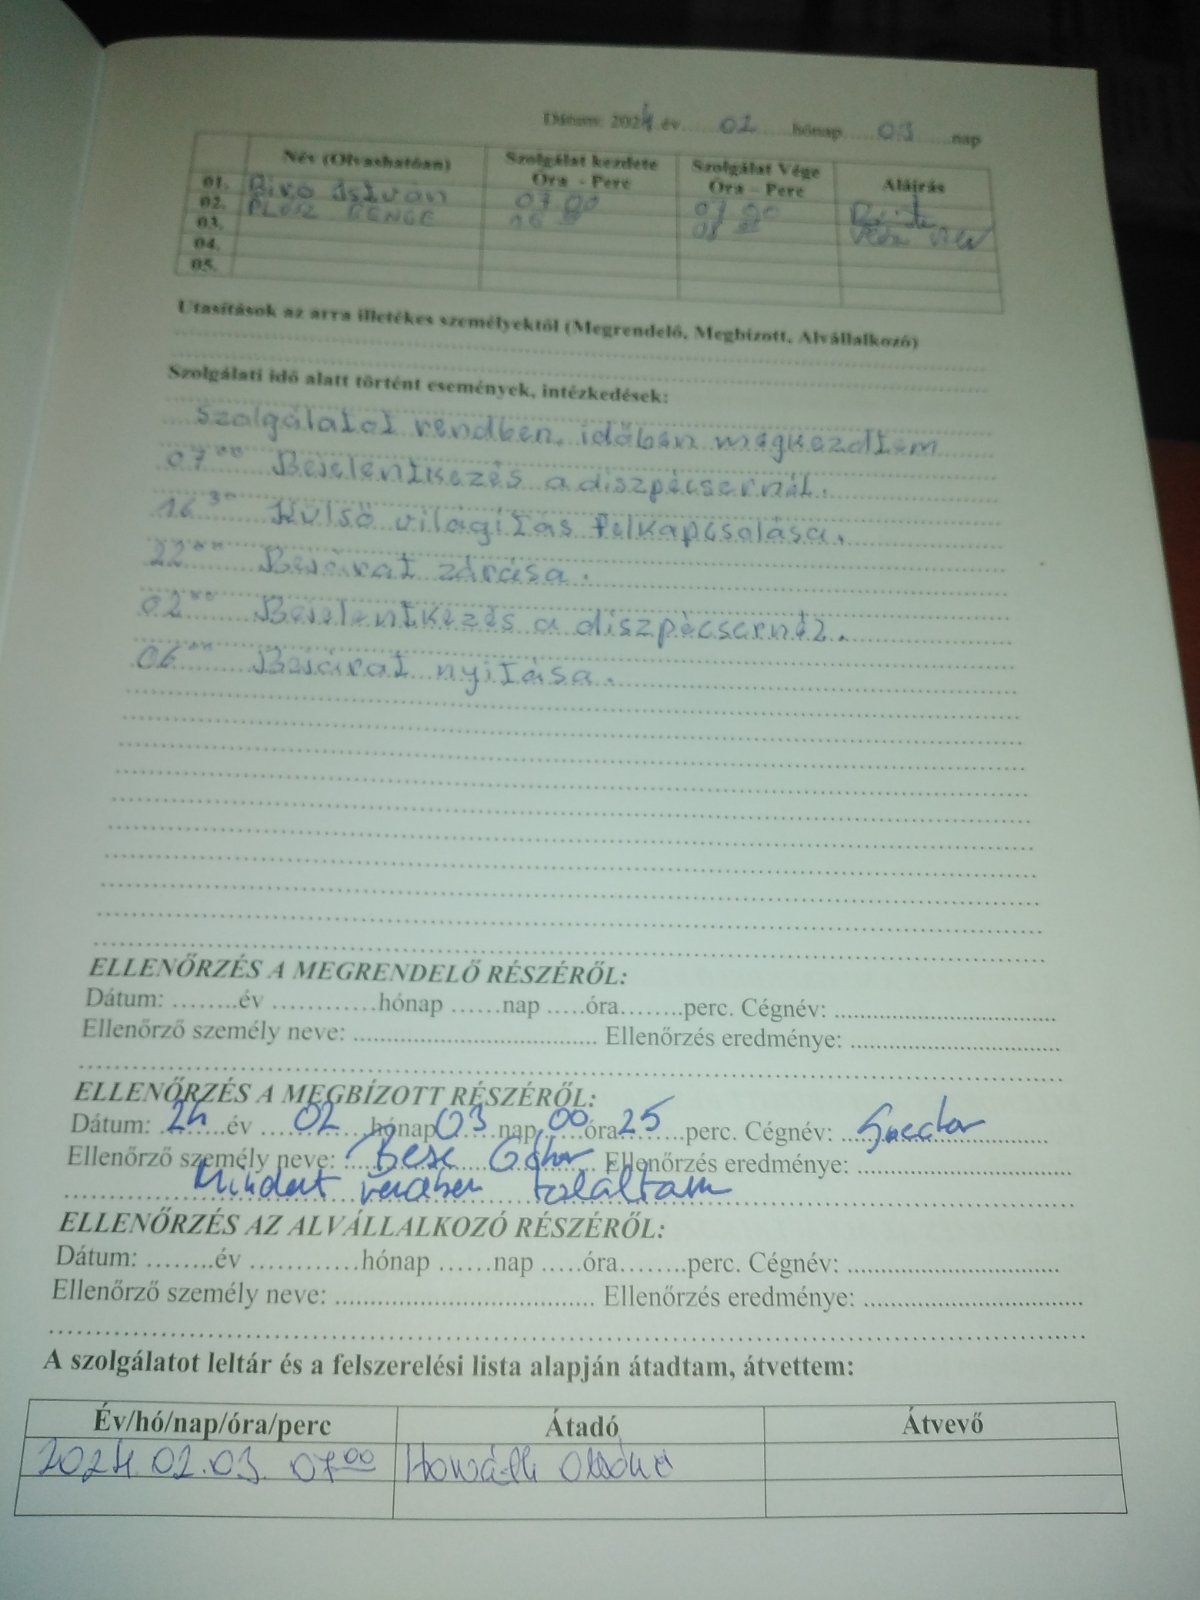 Dátum: 2024 év 02 hónap 03 nap
Név (Olvashatóan) Szolgálat kezdete Óra - Perc Szolgálat Vége Óra – Perc Aláírás
01. Biró István 07 00 07 00
02. 16
03.
04.
05.
Utasítások az arra illetékes személyektől (Megrendelő, Megbízott, Alvállalkozó)
Szolgálati idő alatt történt események, intézkedések:
Szolgálatot rendben, időben megkezdtem
07 00 Bejelentkezés a diszpécsernél.
16 30 Külső világítás felkapcsolása.
22 00 Bejárat zárása.
02 00 Bejelentkezés a diszpécsernél.
06 00 Bejárat nyitása.
ELLENŐRZÉS A MEGRENDELŐ RÉSZÉRŐL:
Dátum: ........év ............hónap ......nap .....óra........perc. Cégnév: ................................
Ellenőrző személy neve: .................................... Ellenőrzés eredménye: ..............................
ELLENŐRZÉS A MEGBÍZOTT RÉSZÉRŐL:
Dátum: 24 év 02 hónap 03 nap 00 óra 25 perc. Cégnév:
Ellenőrző személy neve: Bese Gábor Ellenőrzés eredménye:
Mindent rendben találtam
ELLENŐRZÉS AZ ALVÁLLALKOZÓ RÉSZÉRŐL:
Dátum: ........év ............hónap ......nap .....óra........perc. Cégnév: ................................
Ellenőrző személy neve: ...................................... Ellenőrzés eredménye: ................................
A szolgálatot leltár és a felszerelési lista alapján átadtam, átvettem:
Év/hó/nap/óra/perc Átadó Átvevő
2024.02.03. 07 00 Horváth